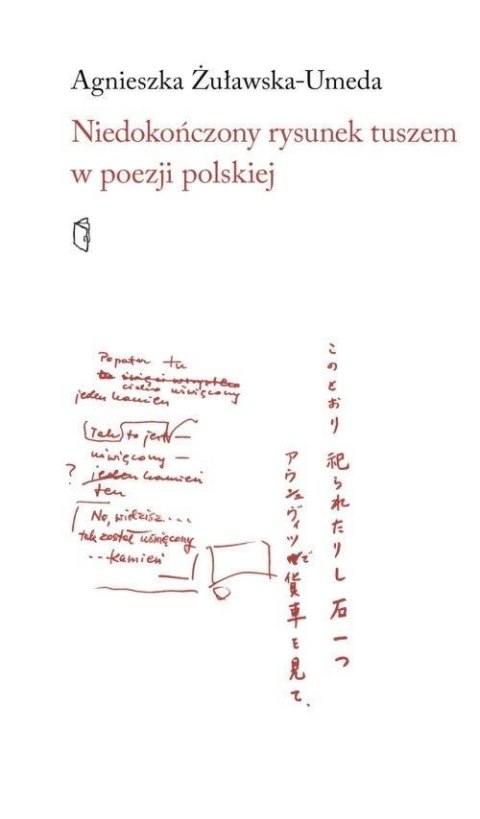 Agnieszka Żuławska-Umeda
Niedokończony rysunek tuszem
w poezji polskiej
Popatrz tu
jeden kamień
(Tak) to jest —
uświęcony —
? jeden kamień
ten
No, widzisz...
tak został uświęcony
...kamień
このとおり 祀られたりし 石一つ
アウシュヴィツで貨車を見て、